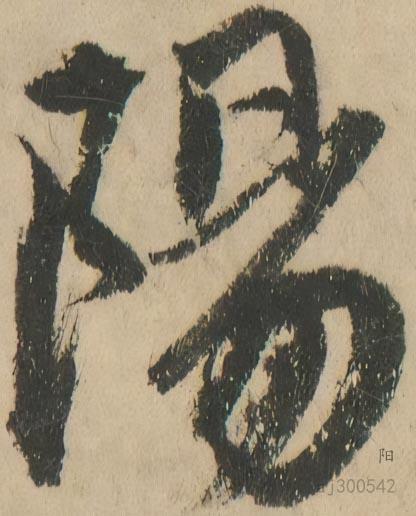 陽
阳
j300542